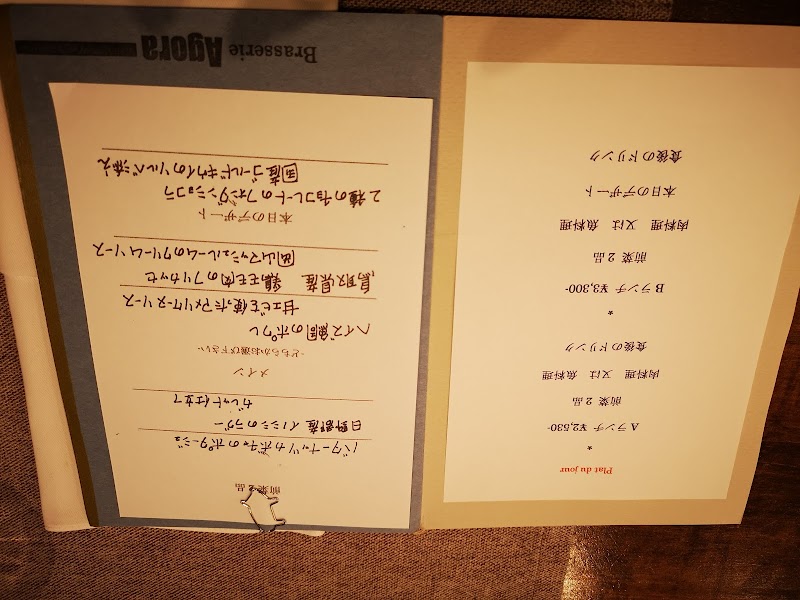 Plat du jour
*
Aランチ ¥2,530-
前菜 2 品
肉料理 又は 魚料理
食後のドリンク
*
Bランチ ¥3,300-
前菜 2 品
肉料理 又は 魚料理
本日のデザート
食後のドリンク
前菜 2 品
バターナッツカボチャのポタージュ
日野郡産 イノシシのラグー
ガレット仕立て
メイン
-どちらかお選び下さい-
のポワレ
甘エビを使ったアメリケーヌソース
鳥取県産 鶏モモ肉のフリカッセ
岡山マッシュルームのクリームソース
本日のデザート
2種のチョコレートのフォンダンショコラ
国産ゴールドキウイのソルベ添え
Brasserie Agora